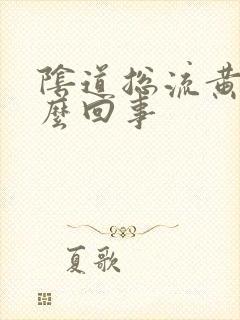 陰道總流黃
麼回事
夏歌